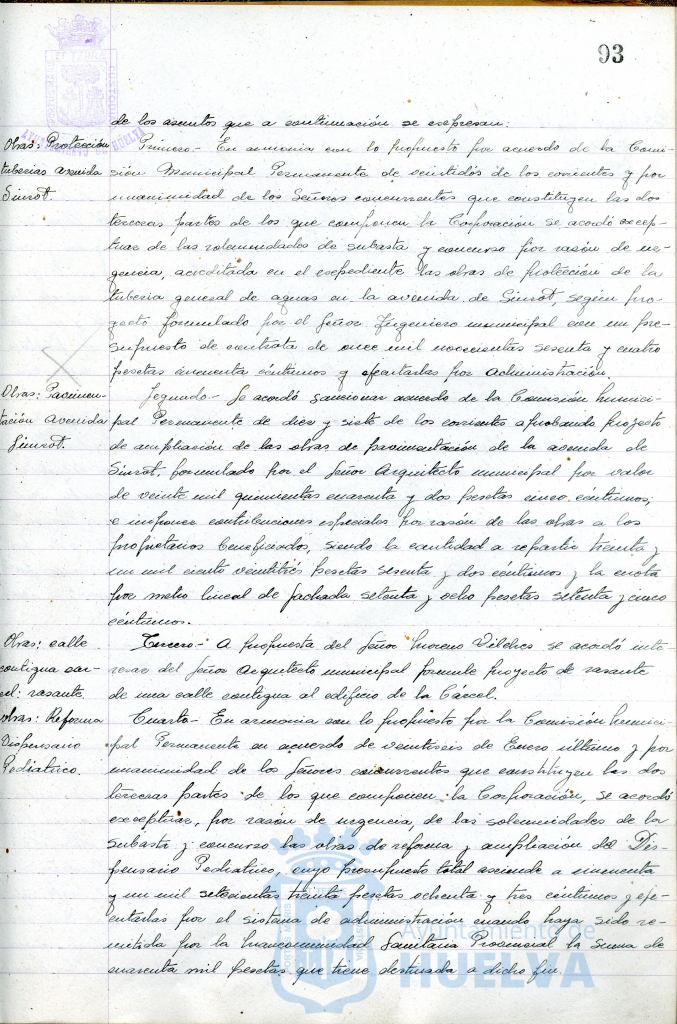 93
de los asuntos que a continuación se expresan:
Obras: Protección
tuberias avenida
Sinrot.
Primero- En armonia con lo propuesto por acuerdo de la Comi-
sión Municipal Permanente de veintidós de los corrientes y por
unanimidad de los Señores concurrentes que constituyen las dos
terceras partes de los que componen la Corporación se acordó excep-
tuar de las solemnidades de subasta y concurso por razón de ur-
gencia, acreditada en el expediente las obras de protección de la
tuberia general de aguas en la avenida de Sinrot, según pro-
yecto formulado por el Señor Ingeniero municipal con un pre-
supuesto de contrata de once mil novecientas sesenta y cuatro
pesetas cincuenta céntimos y ejecutarlas por administración.
Obras: Pavimen-
tación avenida
Sinrot.
Segundo- Se acordó sancionar acuerdo de la Comisión Munici-
pal Permanente de diez y siete de los corrientes aprobando proyecto
de ampliación de las obras de pavimentación de la avenida de
Sinrot, formulado por el Señor Arquitecto municipal por valor
de veinte mil quinientas cuarenta y dos pesetas cinco céntimos;
e imponer contribuciones especiales por razón de las obras a los
propietarios beneficiados, siendo la cantidad a repartir treinta y
un mil ciento veintitrés pesetas sesenta y dos céntimos y la cuota
por metro lineal de fachada setenta y ocho pesetas setenta y cinco
céntimos.
Obras: calle
contigua car-
cel: rasante
Tercero- A propuesta del Señor Moreno Vilches se acordó inte-
resar del Señor Arquitecto municipal formule proyecto de rasante
de una calle contigua al edificio de la Cárcel.
obras: Reforma
Dispensario
Pediatrico.
Cuarto- En armonia con lo propuesto por la Comisión Munici-
pal Permanente en acuerdo de veintiseis de Enero último y por
unanimidad de los Señores concurrentes que constituyen las dos
terceras partes de los que componen la Corporación, se acordó
exceptuar, por razón de urgencia, de las solemnidades de la
subasta y concurso las obras de reforma y ampliación del Dis-
pensario Pediatrico, cuyo presupuesto total asciende a cincuenta
y un mil setecientas treinta pesetas ochenta y tres céntimos y eje-
cutarlas por el sistema de administración cuando haya sido re-
mitida por la Mancomunidad Sanitaria Provincial la suma de
cuarenta mil pesetas que tiene destinada a dicho fin.
Ayuntamiento de
HUELVA